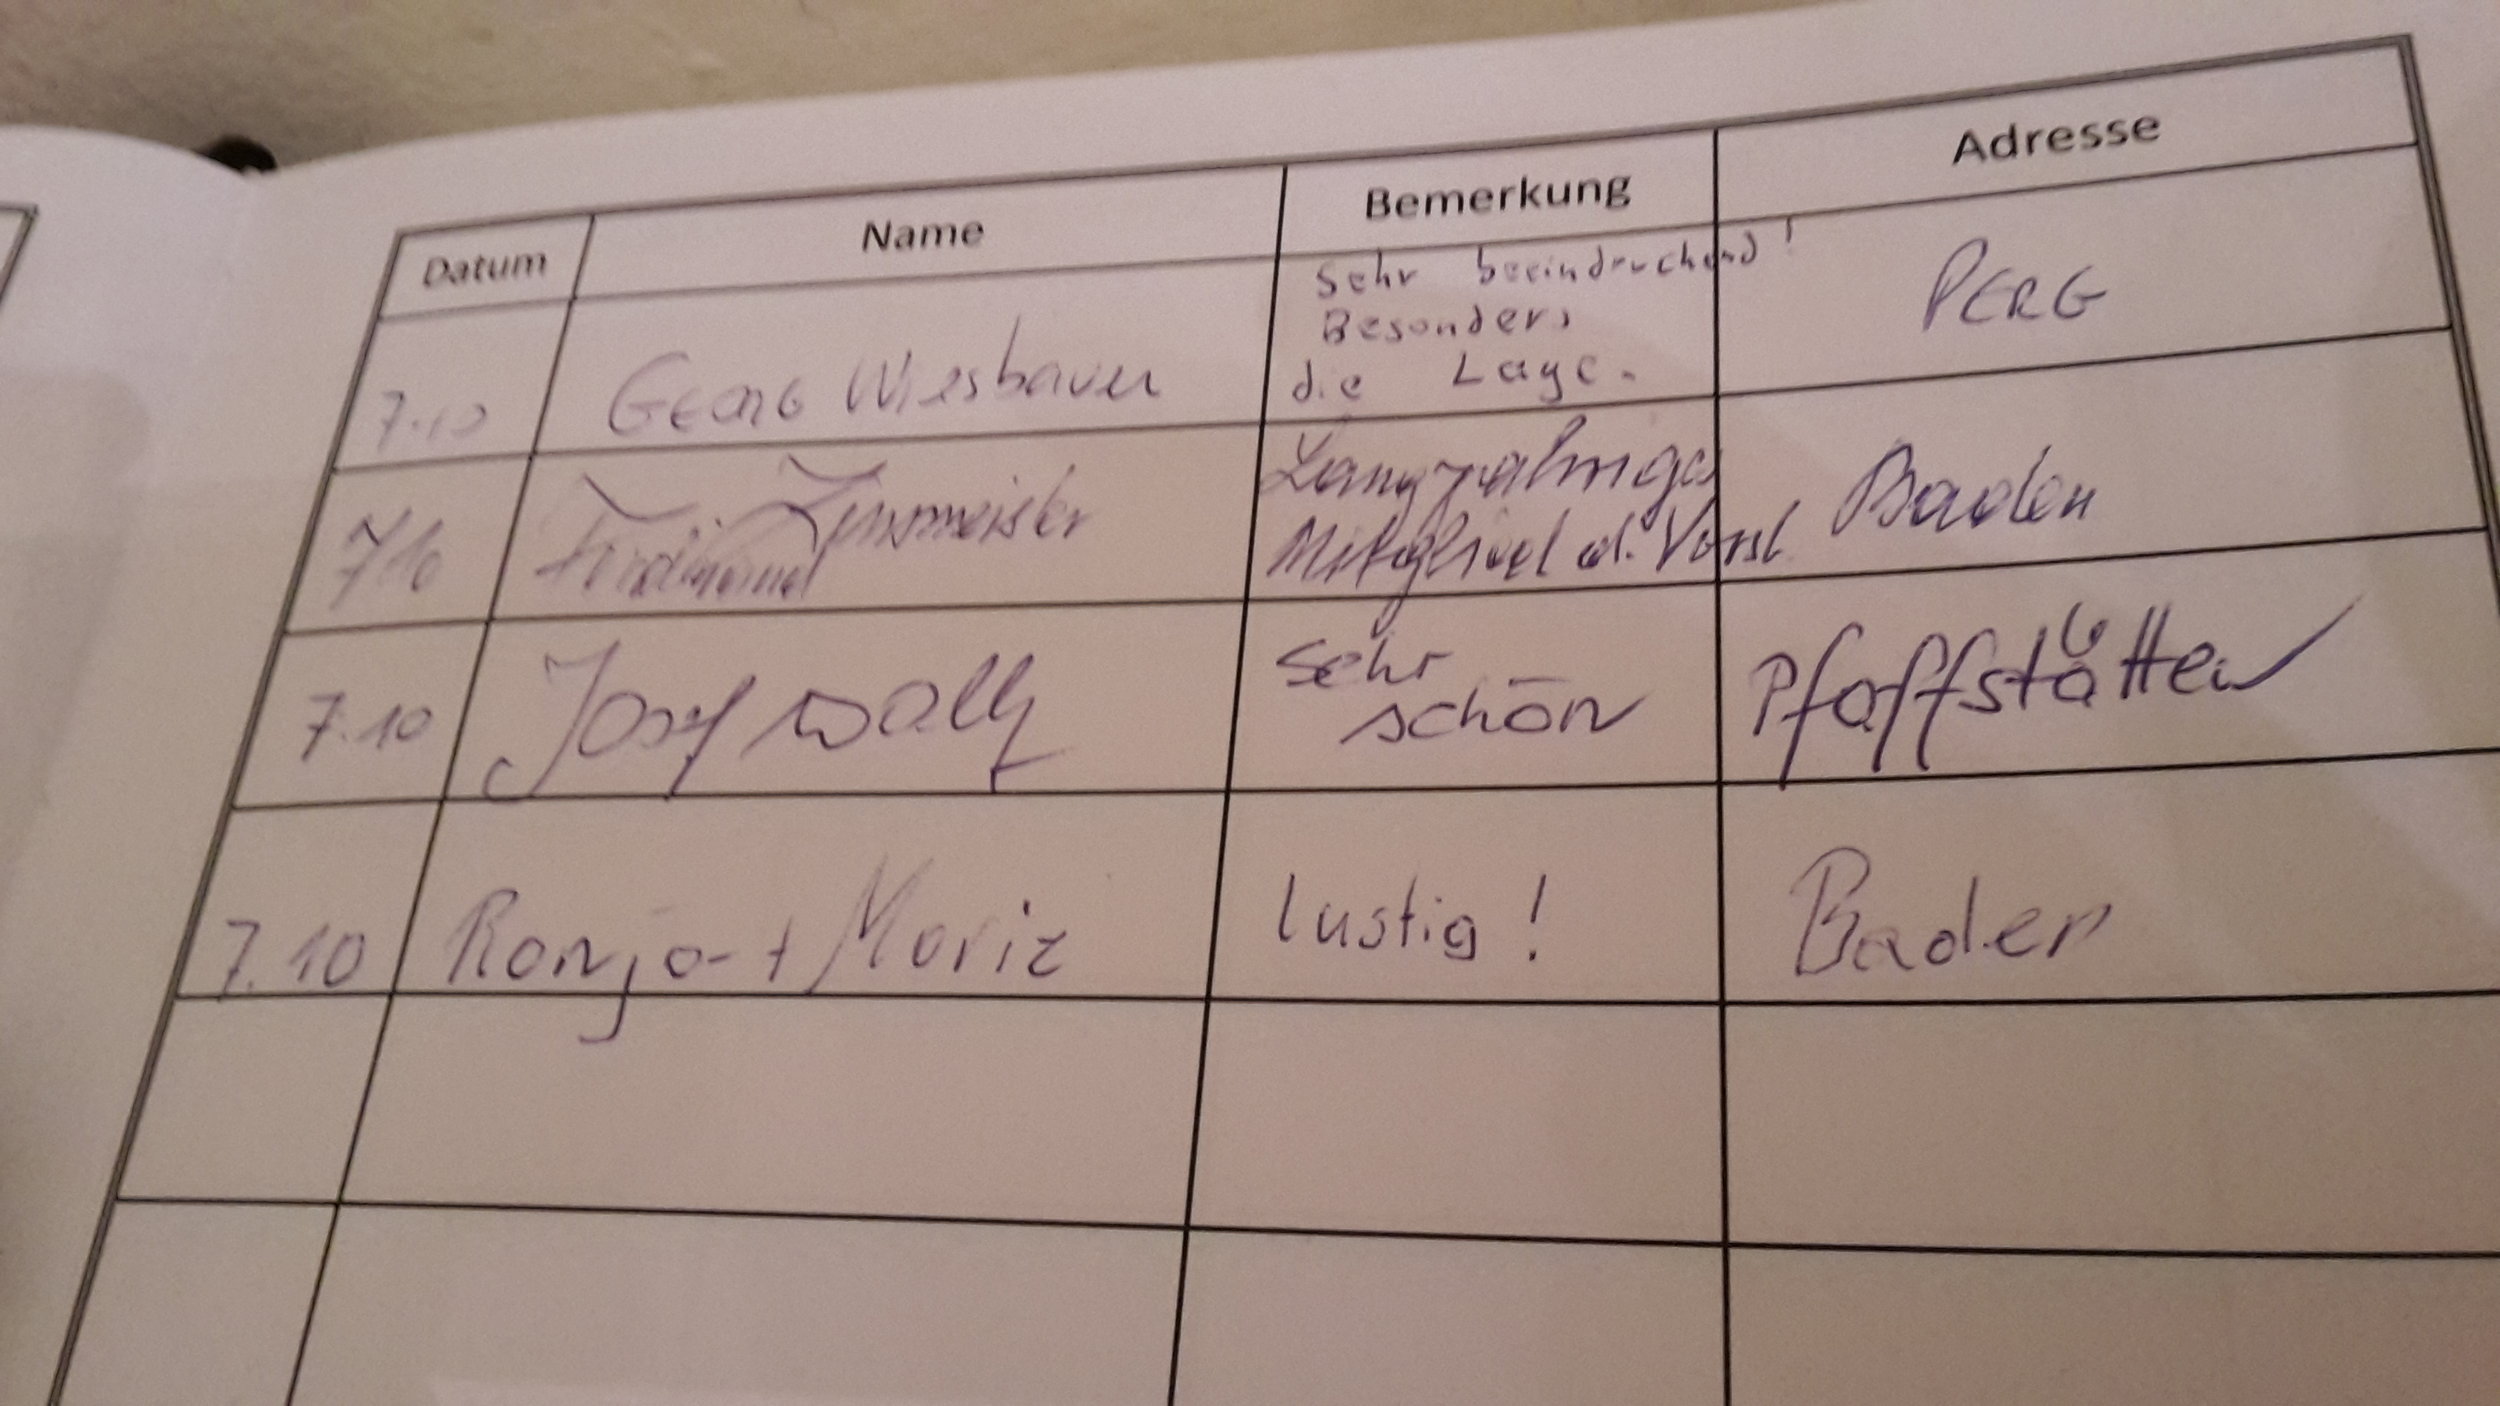 Datum Name Bemerkung Adresse
7.10 Georg Wiesbauer Sehr beeindruckend! PERG
Besonders
die Lage.
7/10 Ferdinand Zinsmeister Langjähriges Baden
Mitglied d. Vorst.
7.10 Josef Sehr Pfaffstätten
schön
7.10 Ronja + Moriz lustig! Baden